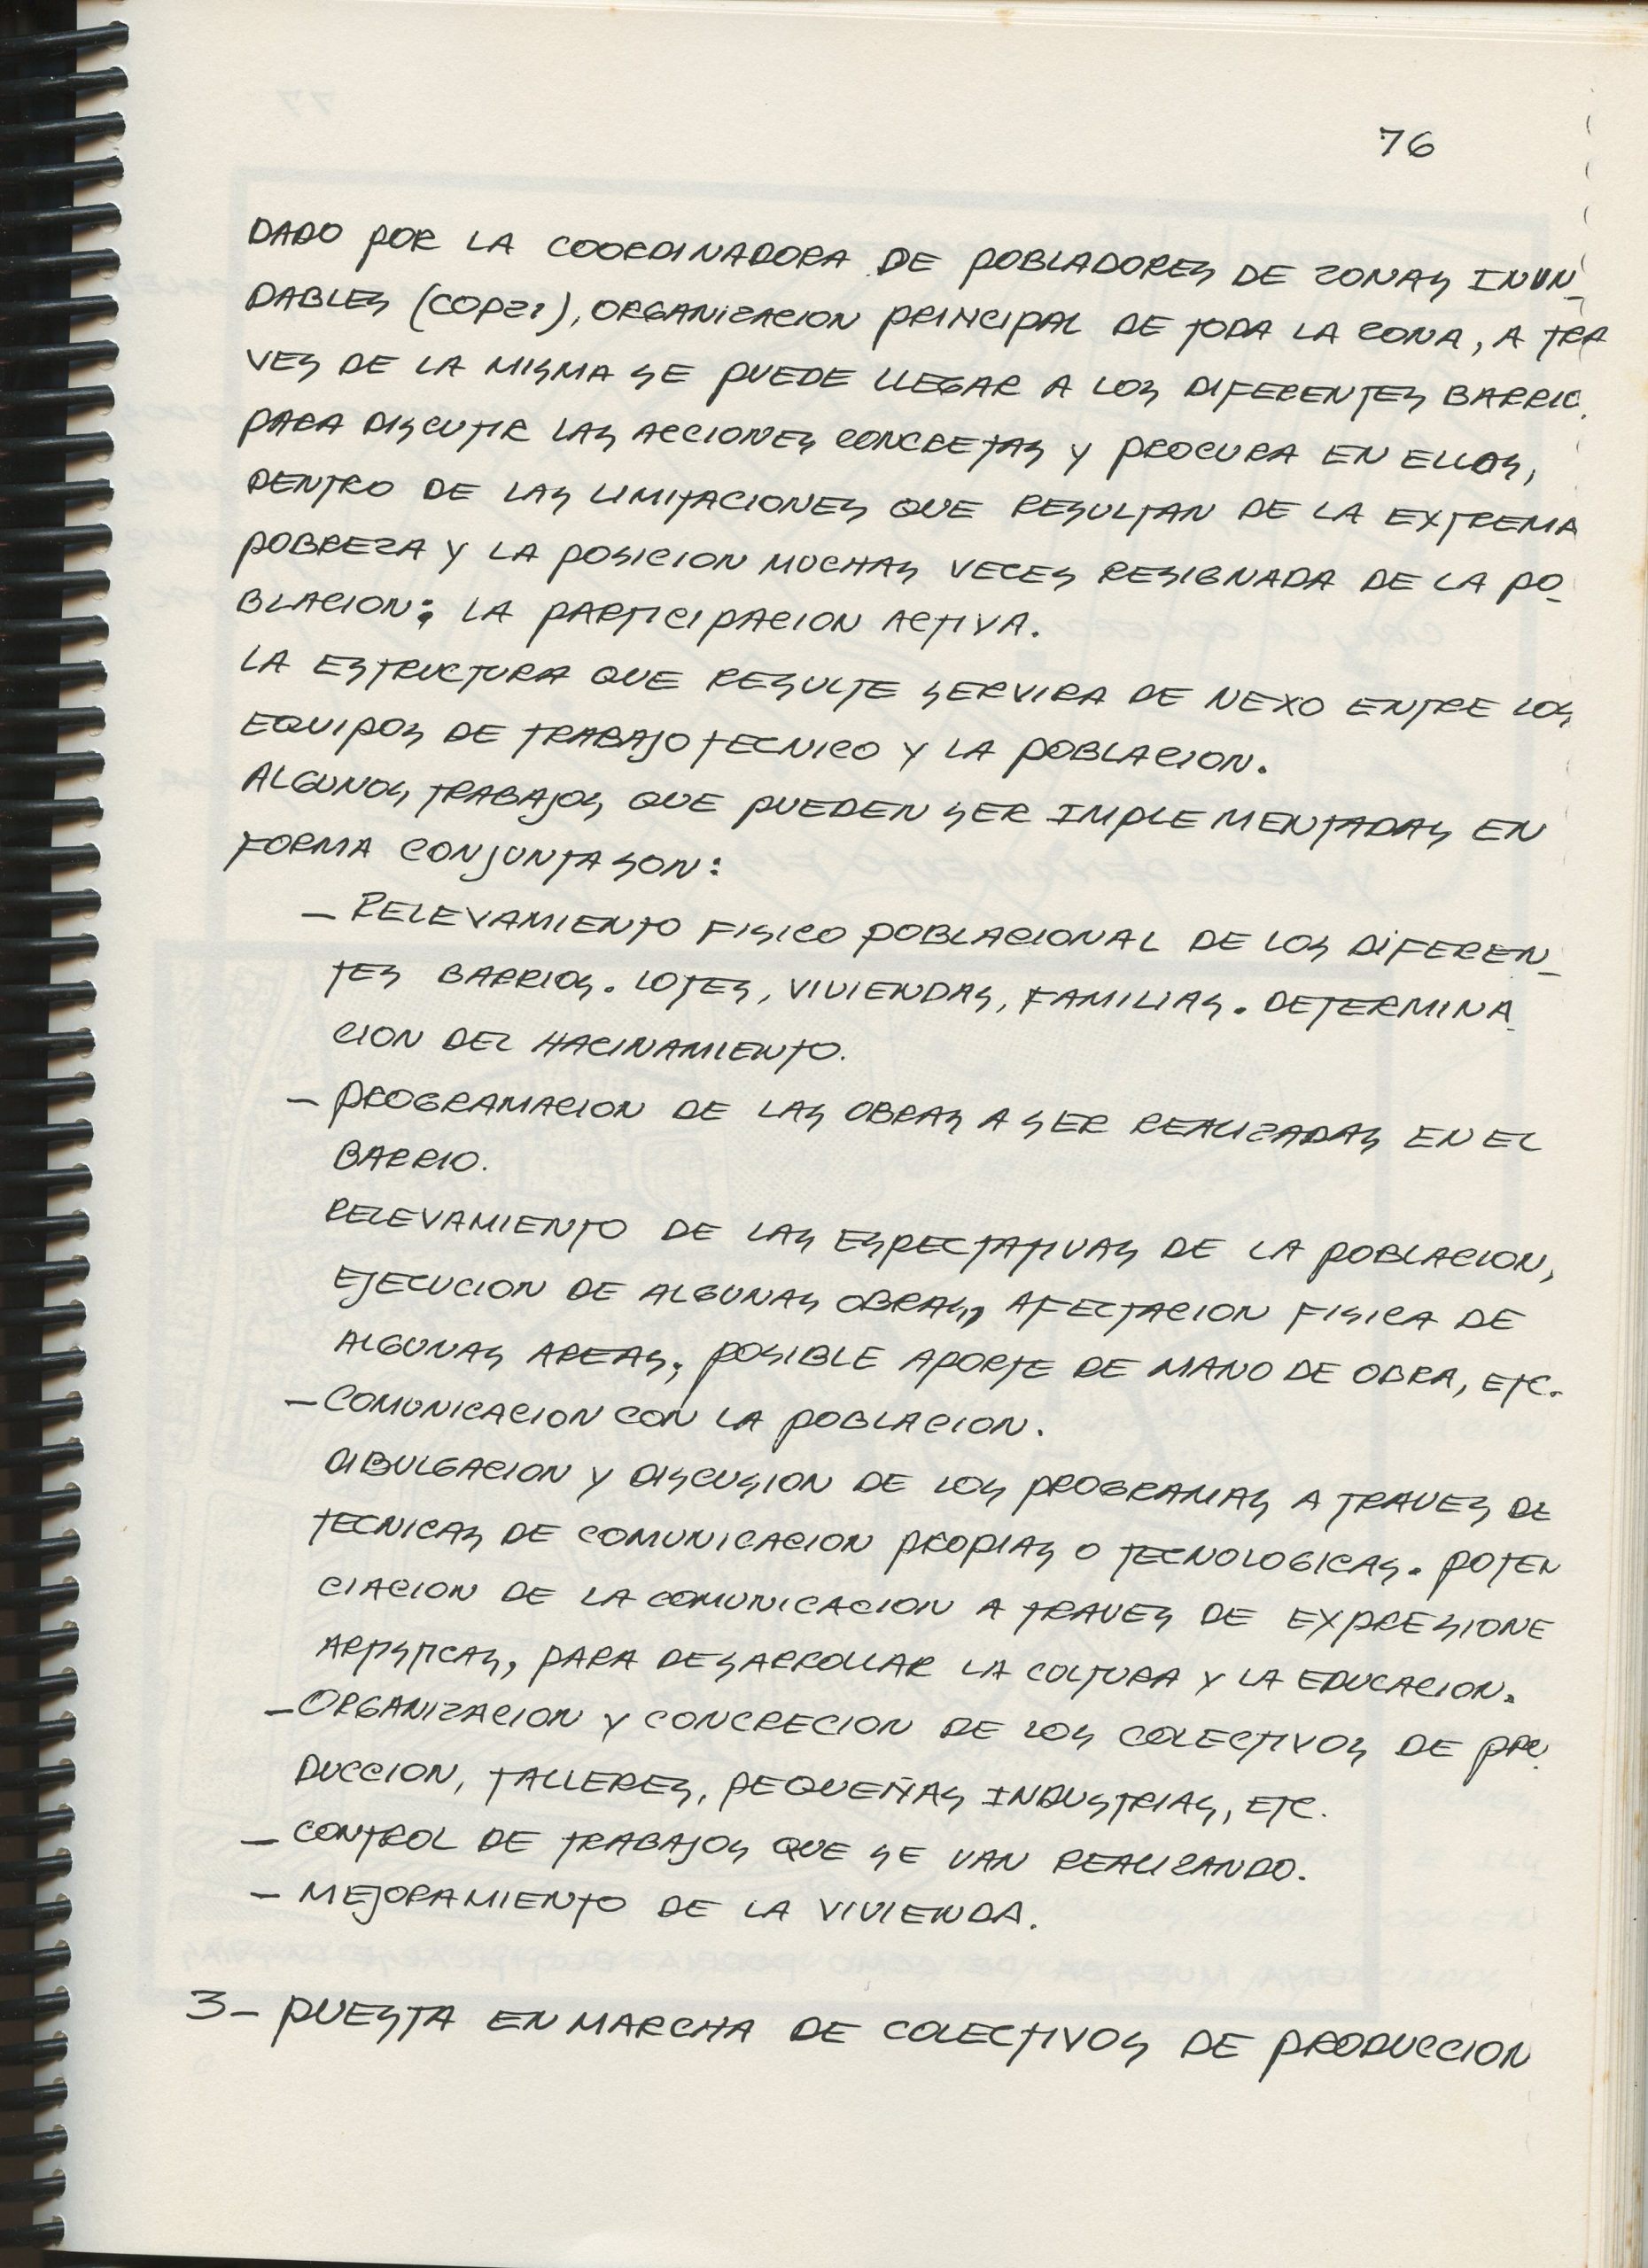 76
DADO POR LA COORDINADORA DE POBLADORES DE ZONAS INUN_
DABLES (COPZI), ORGANIZACION PRINCIPAL DE TODA LA ZONA, A TRA
VES DE LA MISMA SE PUEDE LLEGAR A LOS DIFERENTES BARRIO.
PARA DISCUTIR LAS ACCIONES CONCRETAS Y PROCURA EN ELLOS,
DENTRO DE LAS LIMITACIONES QUE RESULTAN DE LA EXTREMA
POBREZA Y LA POSICION MUCHAS VECES RESIGNADA DE LA PO_
BLACION; LA PARTICIPACION ACTIVA.
LA ESTRUCTURA QUE RESULTE SERVIRA DE NEXO ENTRE LOS
EQUIPOS DE TRABAJO TECNICO Y LA POBLACION.
ALGUNOS TRABAJOS QUE PUEDEN SER IMPLEMENTADAS EN
FORMA CONJUNTA SON:
_ RELEVAMIENTO FISICO POBLACIONAL DE LOS DIFEREN_
TES BARRIOS. LOTES, VIVIENDAS, FAMILIAS. DETERMINA_
CION DEL HACINAMIENTO.
_ PROGRAMACION DE LAS OBRAS A SER REALIZADAS EN EL
BARRIO.
RELEVAMIENTO DE LAS ESPECTATIVAS DE LA POBLACION,
EJECUCION DE ALGUNAS OBRAS, AFECTACION FISICA DE
ALGUNAS AREAS, POSIBLE APORTE DE MANO DE OBRA, ETC.
_ COMUNICACION CON LA POBLACION.
DIBULGACION Y DISCUSION DE LOS PROGRAMAS A TRAVES DE
TECNICAS DE COMUNICACION PROPIAS O TECNOLOGICAS. POTEN
CIACION DE LA COMUNICACION A TRAVES DE EXPRESIONE
ARTISTICAS, PARA DESARROLLAR LA CULTURA Y LA EDUCACION.
_ ORGANIZACION Y CONCRECION DE LOS COLECTIVOS DE PRO
DUCCION, TALLERES, PEQUEÑAS INDUSTRIAS, ETC.
_ CONTROL DE TRABAJOS QUE SE VAN REALIZANDO.
_ MEJORAMIENTO DE LA VIVIENDA.
3_ PUESTA EN MARCHA DE COLECTIVOS DE PRODUCCION